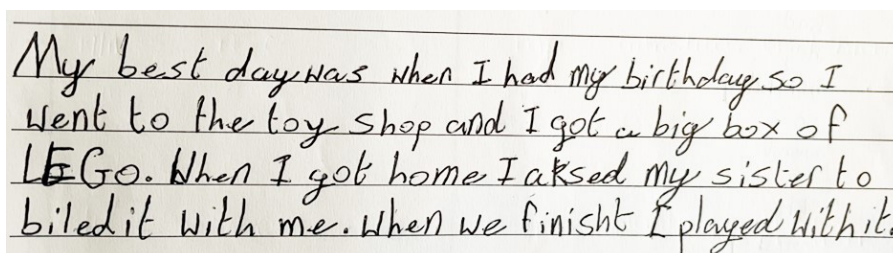 My best day was when I had my birthday so I
went to the toy shop and I got a big box of
LEGo. When I got home I aksed my sister to
biled it with me. When we finisht I played with it.